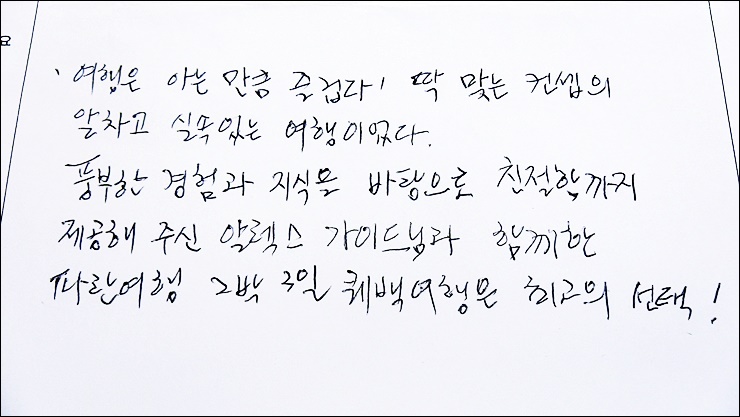 요
' 여행은 아는 만큼 즐겁다! 딱 맞는 컨셉의
알차고 실속있는 여행이었다.
풍부한 경험과 지식을 바탕으로 친절함까지
제공해 주신 알렉스 가이드님과 함께한
파란여행 2박 3일 퀘백여행은 최고의 선택!